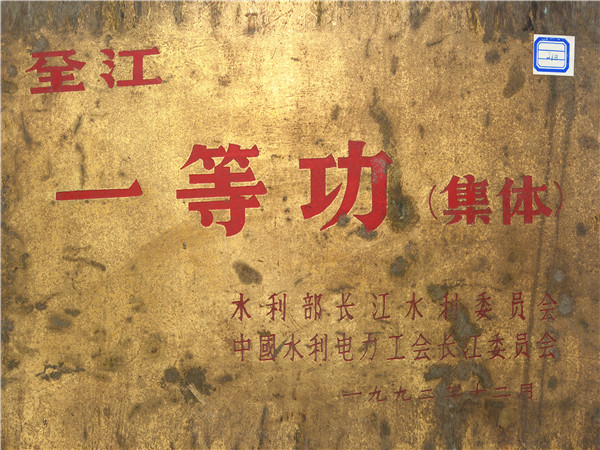 全江
一等功(集体)
水利部长江水利委员会
中國水利电力工会长江委员会
一九九二年十二月